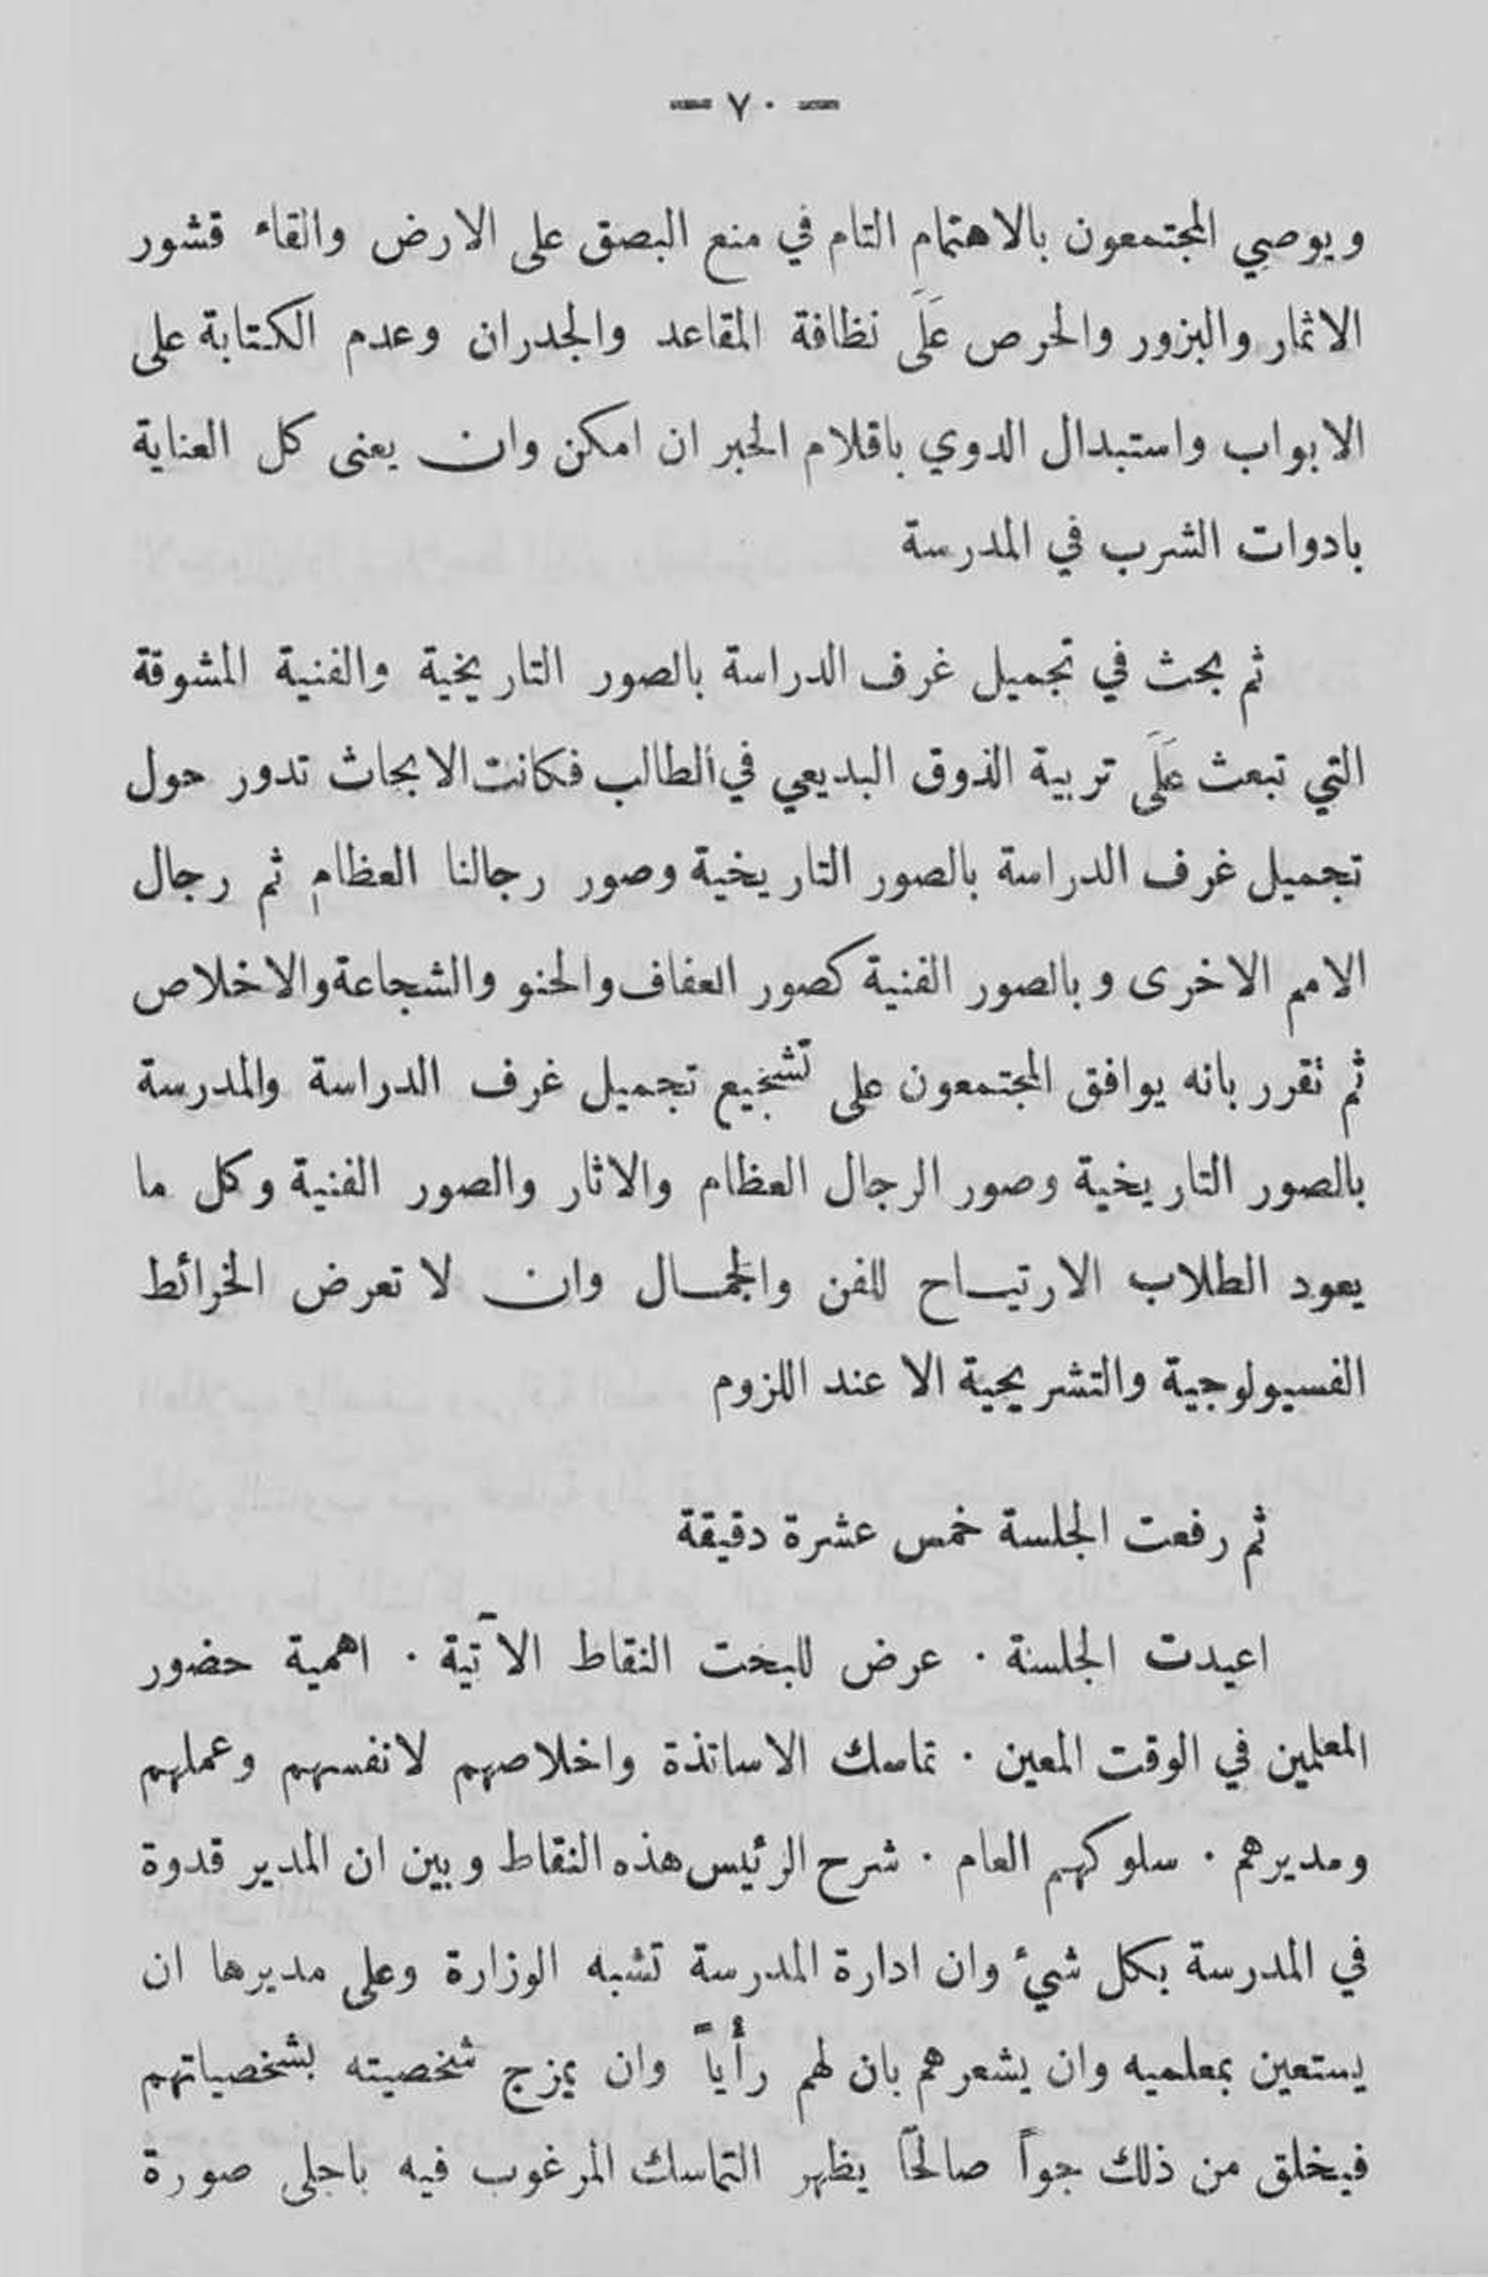 — ٧٠ —
ويوصي المجتمعون بالاهتمام التام في منع البصق على الارض والقاء قشور
الاثمار والبزور والحرص عَلَى نظافة المقاعد والجدران وعدم الكتابة على
الابواب واستبدال الدوي باقلام الحبر ان امكن وان يعنى كل العناية
بادوات الشرب في المدرسة
ثم بحث في تجميل غرف الدراسة بالصور التاريخية والفنية المشوقة
التي تبعث عَلَى تربية الذوق البديعي في الطالب فكانت الابحاث تدور حول
تجميل غرف الدراسة بالصور التاريخية وصور رجالنا العظام ثم رجال
الامم الاخرى وبالصور الفنية كصور العفاف والحنو والشجاعة والاخلاص
ثم تقرر بانه يوافق المجتمعون على تشجيع تجميل غرف الدراسة والمدرسة
بالصور التاريخية وصور الرجال العظام والاثار والصور الفنية وكل ما
يعود الطلاب الارتيـاح للفن والجمـال وان لا تعرض الخرائط
الفسيولوجية والتشريحية الا عند اللزوم
ثم رفعت الجلسة خمس عشرة دقيقة
اعيدت الجلسة · عرض للبحث النقاط الآتية · اهمية حضور
المعلمين في الوقت المعين · تماسك الاساتذة واخلاصهم لانفسهم وعملهم
ومديرهم · سلوكهم العام · شرح الرئيس هذه النقاط وبين ان المدير قدوة
في المدرسة بكل شيء وان ادارة المدرسة تشبه الوزارة وعلى مديرها ان
يستعين بمعلميه وان يشعرهم بان لهم رأياً وان يمزج شخصيته بشخصياتهم
فيخلق من ذلك جواً صالحاً يظهر التماسك المرغوب فيه باجلى صورة